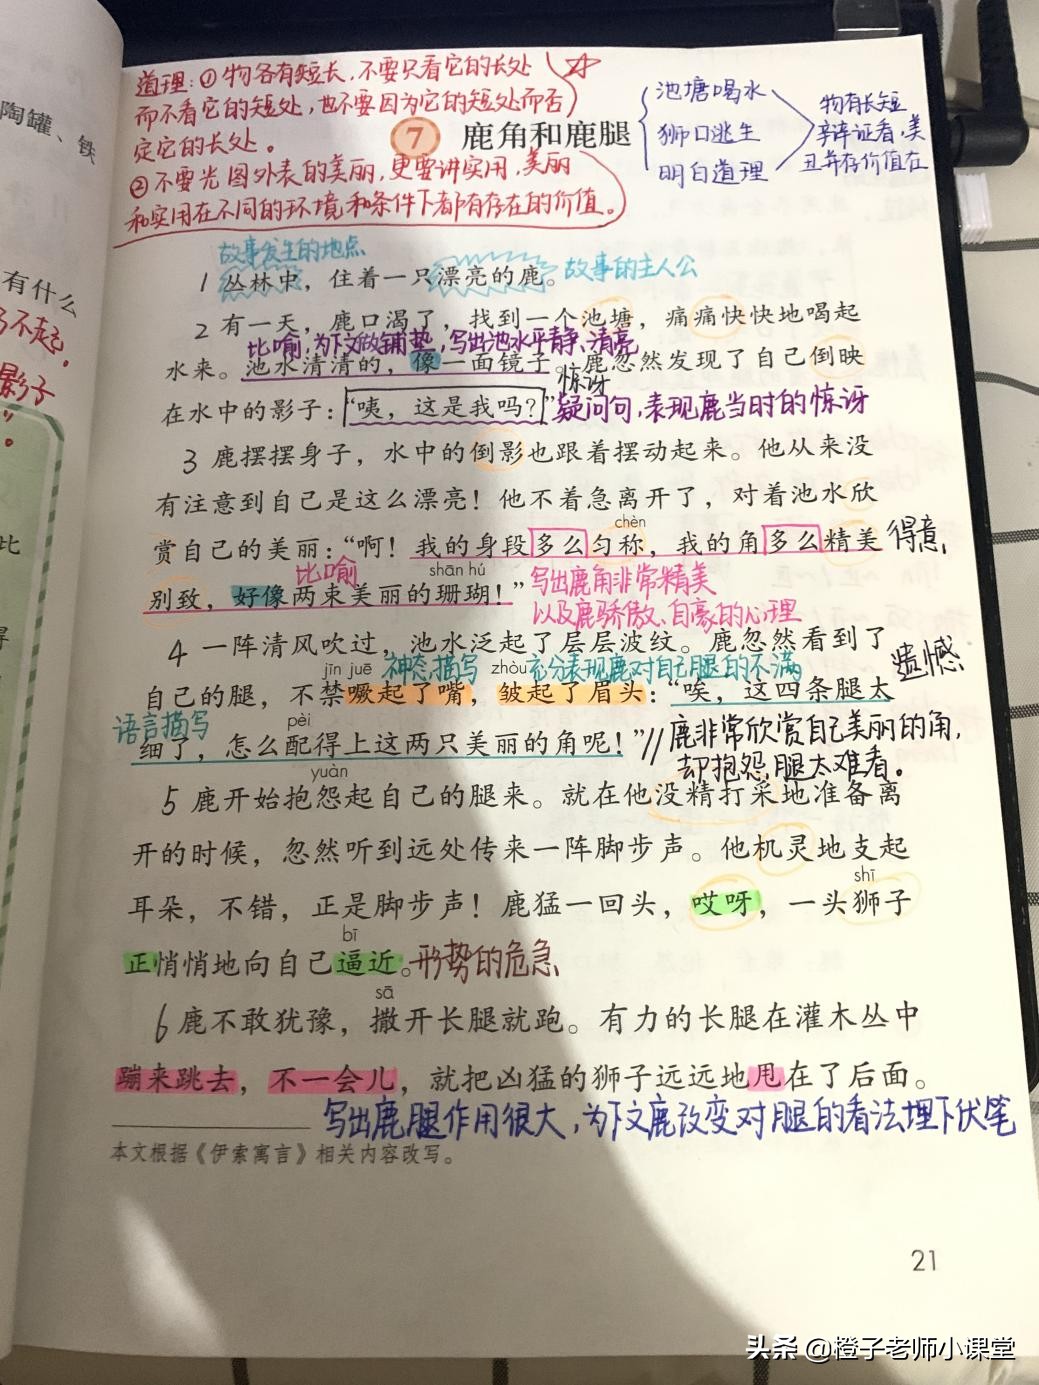 陶罐、铁
有什么
影子
比
得
道理:①物各有短长,不要只看它的长处
而不看它的短处,也不要因为它的短处而否
定它的长处。
②不要光图外表的美丽,更要讲实用,美丽
和实用在不同的环境和条件下都有存在的价值。
7 鹿角和鹿腿
池塘喝水
狮口逃生
明白道理
物有长短
辩证看,美
丑并存价值在
故事发生的地点
1 丛林中,住着一只漂亮的鹿。故事的主人公
2 有一天,鹿口渴了,找到一个池塘,痛痛快快地喝起
比喻,为下文做铺垫,写出池水平静、清亮
水来。池水清清的,像一面镜子。鹿忽然发现了自己倒映
惊讶
在水中的影子:“咦,这是我吗?”疑问句,表现鹿当时的惊讶
3 鹿摆摆身子,水中的倒影也跟着摆动起来。他从来没
有注意到自己是这么漂亮!他不着急离开了,对着池水欣
chèn
赏自己的美丽:“啊!我的身段多么匀称,我的角多么精美 得意
比喻 shān hú
别致,好像两束美丽的珊瑚!”写出鹿角非常精美
以及鹿骄傲、自豪的心理
4 一阵清风吹过,池水泛起了层层波纹。鹿忽然看到了
遗憾
jīn juē 神态描写 zhòu 充分表现鹿对自己腿的不满
自己的腿,不禁噘起了嘴,皱起了眉头:“唉,这四条腿太
语言描写 pèi
细了,怎么配得上这两只美丽的角呢!”//鹿非常欣赏自己美丽的角,
却抱怨腿太难看。
yuàn
5 鹿开始抱怨起自己的腿来。就在他没精打采地准备离
开的时候,忽然听到远处传来一阵脚步声。他机灵地支起
shī
耳朵,不错,正是脚步声!鹿猛一回头,哎呀,一头狮子
bī
正悄悄地向自己逼近。形势的危急
sā
6 鹿不敢犹豫,撒开长腿就跑。有力的长腿在灌木丛中
蹦来跳去,不一会儿,就把凶猛的狮子远远地甩在了后面。
写出鹿腿作用很大,为下文鹿改变对腿的看法埋下伏笔
本文根据《伊索寓言》相关内容改写。
21
头条 @橙子老师小课堂